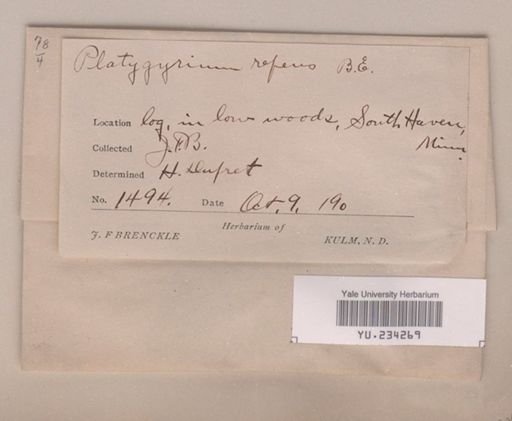 78
4
Platygyrium repens B.E.
Location log, in low woods, South Haven,
Minn.
Collected J.F.B.
Determined H. Dupret
No. 1494. Date Oct, 9, 190
Herbarium of
J. F BRENCKLE KULM, N. D.
Yale University Herbarium
YU.234269